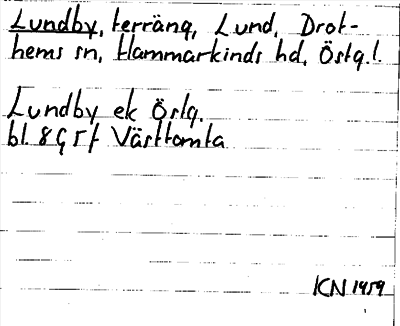 Lundby, terräng, Lund, Drot-
hems sn, Hammarkinds hd, Östg.l.
Lundby ek Östg.
bl. 8G 5f Västtomta
KN 1959